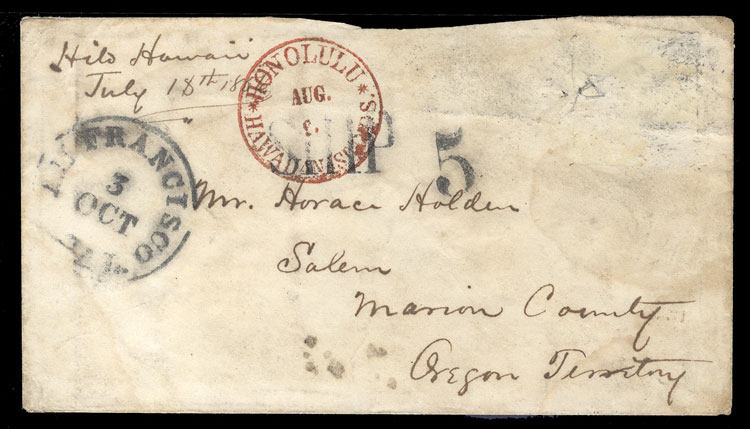 Hilo Hawaii
July 18th 18
HONOLULU
* HAWAIIAN ISLANDS. *
AUG.
SHIP
5
SAN FRANCISCO
3
OCT
CAL.
Mr. Horace Holden
Salem
Marion County
Oregon Territory